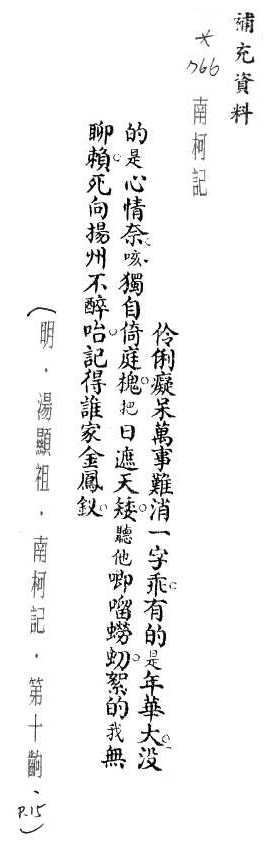 補充資料
南柯記
伶俐癡呆萬事難消一字乖。有的是年華大。没
的是心情奈。咳。獨自倚庭槐。把日遮天矮。聽他唧蟧虭。絮的我無
聊賴。死向揚州不醉咍。記得誰家金鳳釵。
(明．湯顯祖．南柯記．第十齣、P.15)